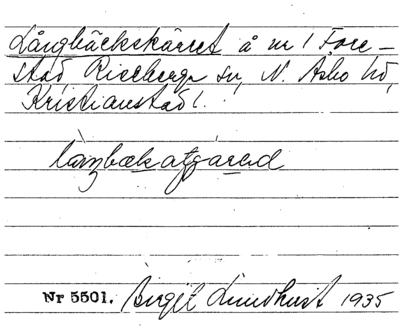 Långbäckskärret å nr 1 Fore-
stad, Riseberga sn, N. Åsbo hd,
Kristianstad l.
Nr 5501. Birgit Lundkvist 1935